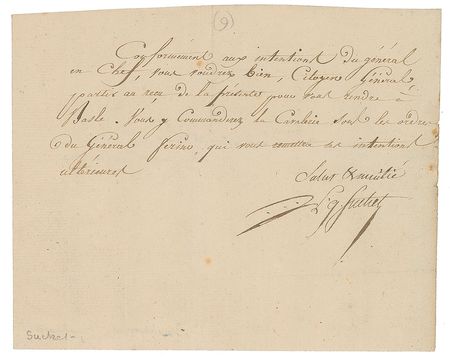 (9)
Conformément aux intentions du général
en Chef, vous voudrez bien, Citoyen Général
partir au reçu de la présente pour vous rendre à
Basle. Vous y Commanderez la Cavalerie sous les ordres
du Général ferino, qui vous remettra ses intentions
ultérieures
Salut & amitié
Suchet
Suchet